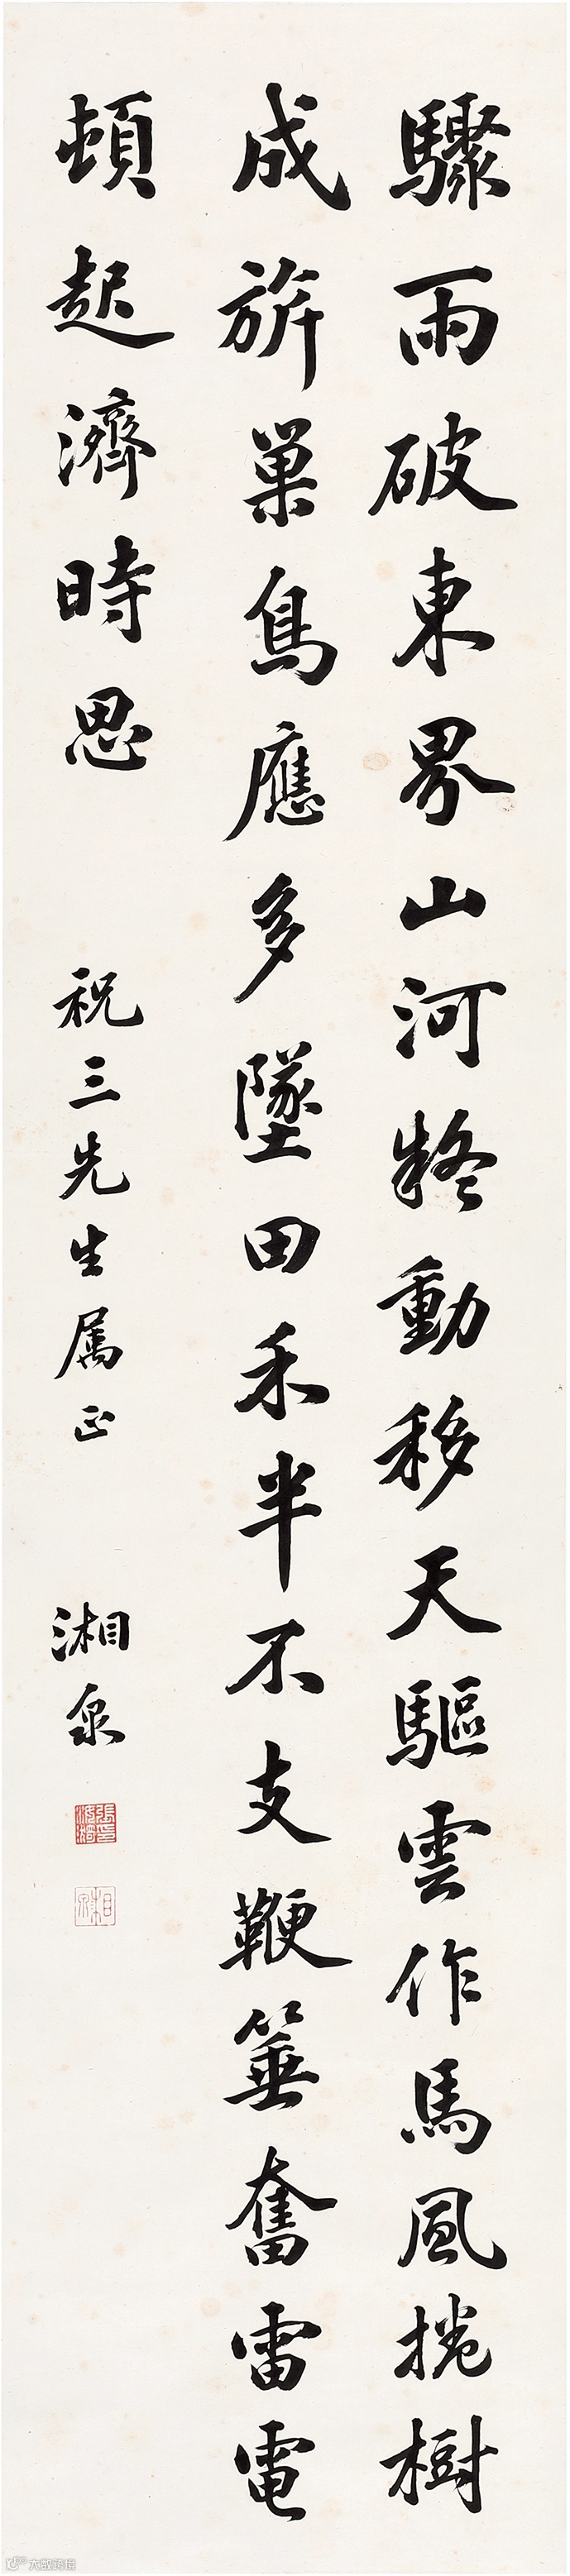 驟雨破東界山河終動移天驅雲作馬風捲樹
成旂巢鳥應多墜田禾半不支鞭箠奮雷電
頓起濟時思
祝三先生属正
湘泉
張印海湘
湘泉